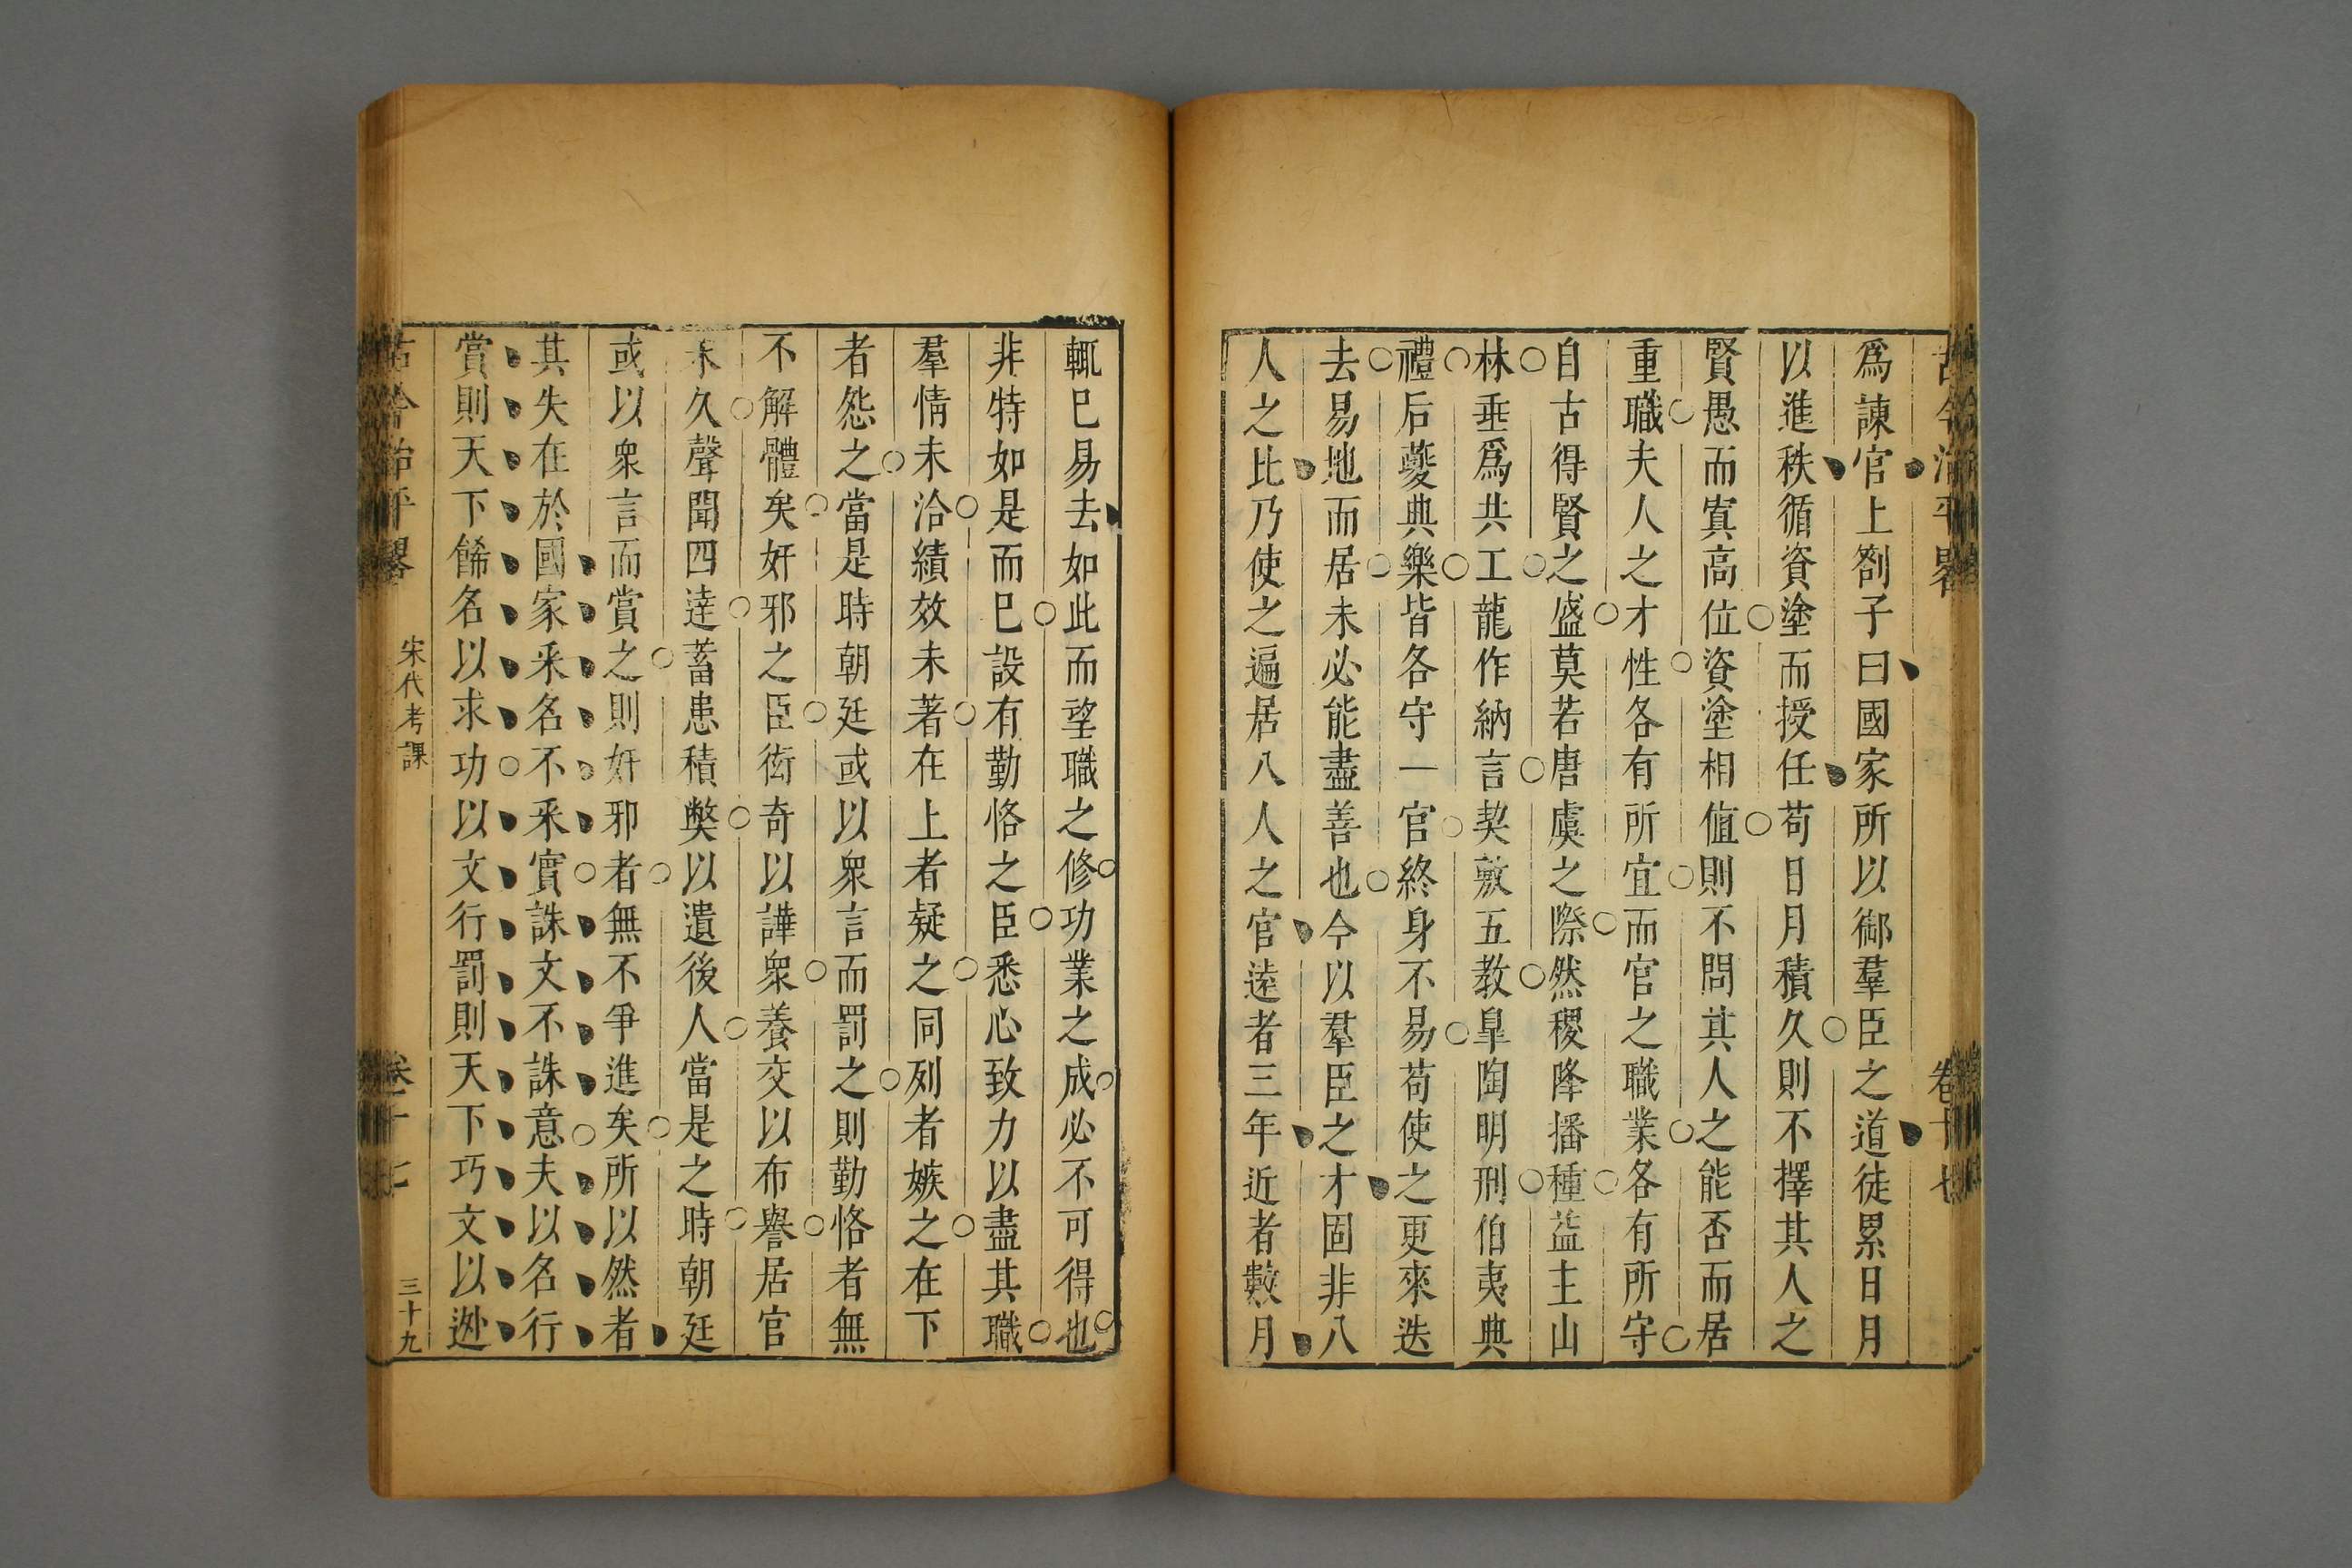 古今治平畧 卷十七
爲諫官上劄子曰國家所以御羣臣之道徒累日月
以進秩循資塗而授任苟日月積久則不擇其人之
賢愚而寘高位資塗相值則不問其人之能否而居
重職夫人之才性各有所宜而官之職業各有所守
自古得賢之盛莫若唐虞之際然稷降播種益主山
林垂爲共工龍作納言契敷五教皐陶明刑伯夷典
禮后夔典樂皆各守一官終身不易苟使之更來迭
去易地而居未必能盡善也今以羣臣之才固非八
人之比乃使之遍居八人之官遠者三年近者數月
輒巳易去如此而望職之修功業之成必不可得也
非特如是而巳設有勤恪之臣悉心致力以盡其職
羣情未洽績效未著在上者疑之同列者嫉之在下
者怨之當是時朝廷或以衆言而罰之則勤恪者無
不解體矣奸邪之臣衒奇以譁衆養交以布譽居官
未久聲聞四達蓄患積弊以遺後人當是之時朝廷
或以衆言而賞之則奸邪者無不爭進矣所以然者
其失在於國家采名不采實誅文不誅意夫以名行
賞則天下餙名以求功以文行罰則天下巧文以逃
古今治平畧 宋代考課 卷十七 三十九